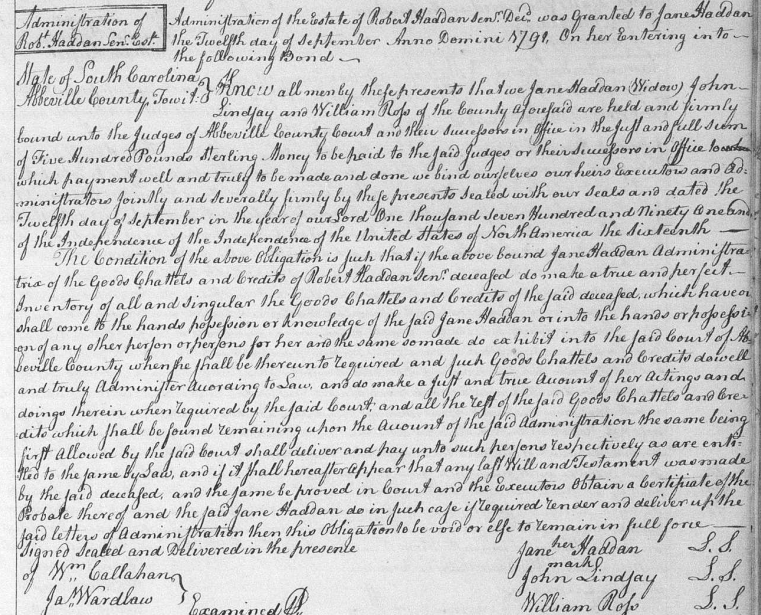 Administration of
Robt. Haddan Senr. Est.
Administration of the Estate of Robert Haddan Senr. Decd. was Granted to Jane Haddan
the Twelfth day of September Anno Domini 1791, On her Entering into
the following Bond
State of South Carolina
Abbeville County, Towit:
Know all men by these presents that we Jane Haddan (Widow) John
Lindsay and William Ross of the County aforesaid are held and firmly
bound unto the Judges of Abbeville County Court and their Successors in Office in the Just and full Sum
of Five Hundred Pounds Sterling Money to be paid to the said Judges or their Successors in Office to
which payment well and truly to be made and done we bind ourselves our heirs Executors and Ad=
ministrators Jointly and Severally firmly by these presents Sealed with our Seals and dated the
Twelfth day of September in the year of our Lord One thousand Seven Hundred and Ninety One and
of the Independence of the Independence of the United States of North America the Sixteenth
The Condition of the above Obligation is such that if the above bound Jane Haddan Administra
trix of the Goods Chattels and Credits of Robert Haddan Senr. deceased do make a true and perfect
Inventory of all and singular the Goods Chattels and Credits of the said deceased, which have or
shall come to the hands possession or knowledge of the said Jane Haddan or into the hands or possessi=
on of any other person or persons for her and the same so made do exhibit into the said Court of Ab
beville County when she shall be thereunto required and such Goods Chattels and Credits do well
and truly Administer According to Law, and do make a just and true Account of her Actings and
doings therein when required by the said Court; and all the rest of the said Goods Chattels and Cre=
dits which shall be found remaining upon the Account of the said Administration the same being
first Allowed by the said Court shall deliver and pay unto such persons respectively as are enti=
tled to the same by Law, and if it shall hereafter Appear that any last Will and Testament was made
by the said deceased, and the same be proved in Court and the Executors Obtain a Certificate of the
Probate thereof and the said Jane Haddan do in such case if required render and deliver up the
said letters of Administration then this Obligation to be void or else to remain in full force
Signed Sealed and Delivered in the presence
of Wm. Callahan
Jas. Wardlaw
Examined
Jane her Haddan L. S.
mark
John Lindsay L. S.
William Ross L. S